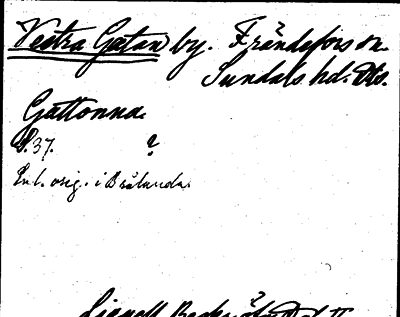 Västra Gatan by. Frändefors sn.
Sundals hd. Dls.
Gattonna.
S. 37. ?
Enl. orig. i Brålanda.
Lignell Beskrifn.